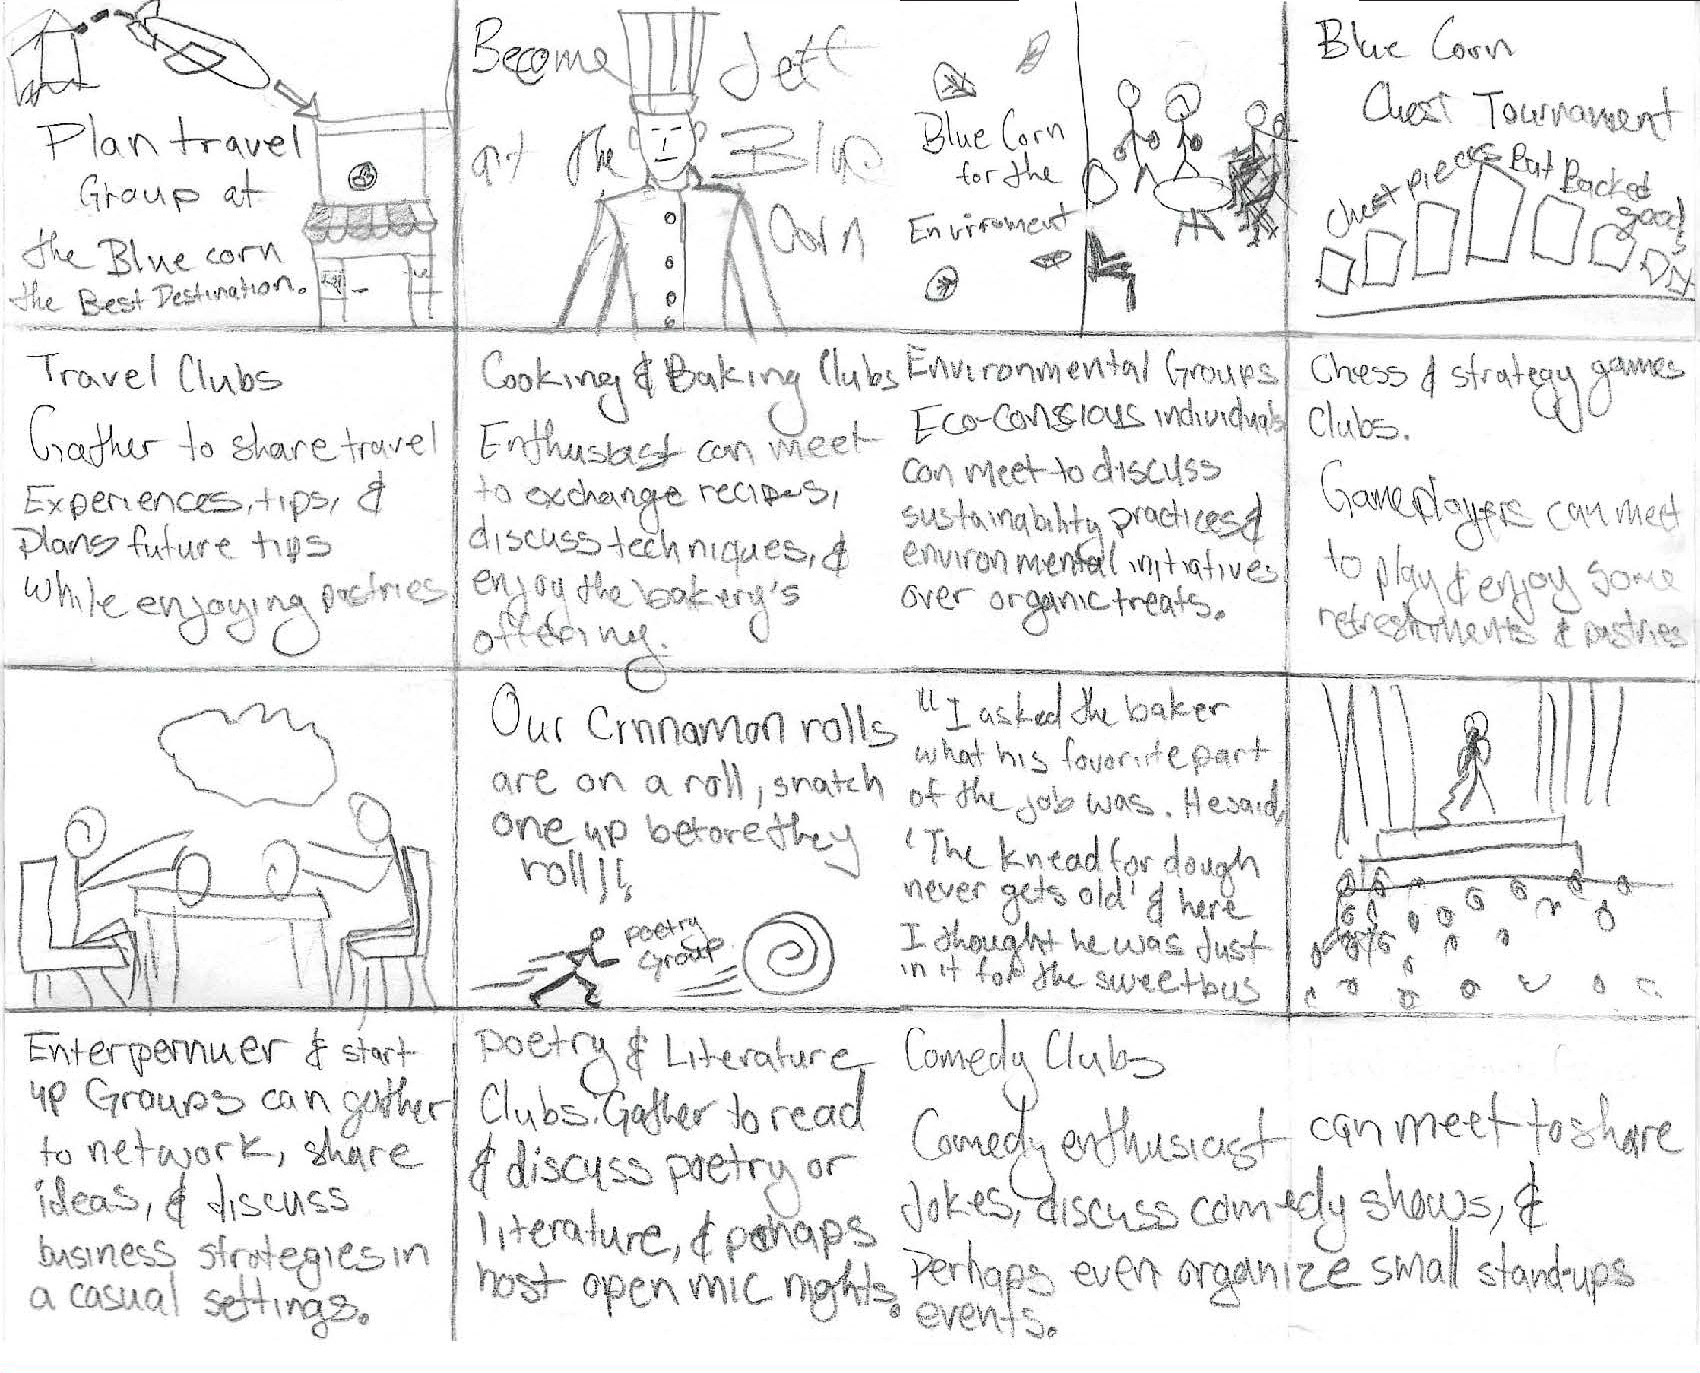 Plan travel
Group at
the Blue corn
the Best Destination.
Become Jeff
at the Blue
Corn
Blue Corn
for the
Enviroment
Blue Corn
Chest Tournament
chest pieces But Backed
goods
Travel Clubs
Gather to share travel
Experiences, tips, &
Plans future tips
while enjoying pastries
Cooking & Baking Clubs
Enthusiast can meet
to exchange recipes,
discuss techniques, &
enjoy the bakery's
offering.
Environmental Groups
Eco-conscious individuals
can meet to discuss
sustainability practices &
environmental initiatives
over organic treats.
Chess & strategy games
Clubs.
Gameplayers can meet
to play & enjoy some
refreshments & pastries
Our Cinnamon rolls
are on a roll, snatch
one up before they
roll!!
Poetry
Group
"I asked the baker
what his favoriite part
of the job was. He said,
'The knead for dough
never gets old' & here
I thought he was Just
in it for the sweet bus
Enterpernuer & start
up Groups can gather
to network, share
ideas, & discuss
business strategies in
a casual settings.
Poetry & Literature
Clubs. Gather to read
& discuss poetry or
literature, & perhaps
host open mic nights.
Comedy Clubs
Comedy enthusiast can meet to share
Jokes, discuss comedy shows, &
Perhaps even organize small stand-ups
events.